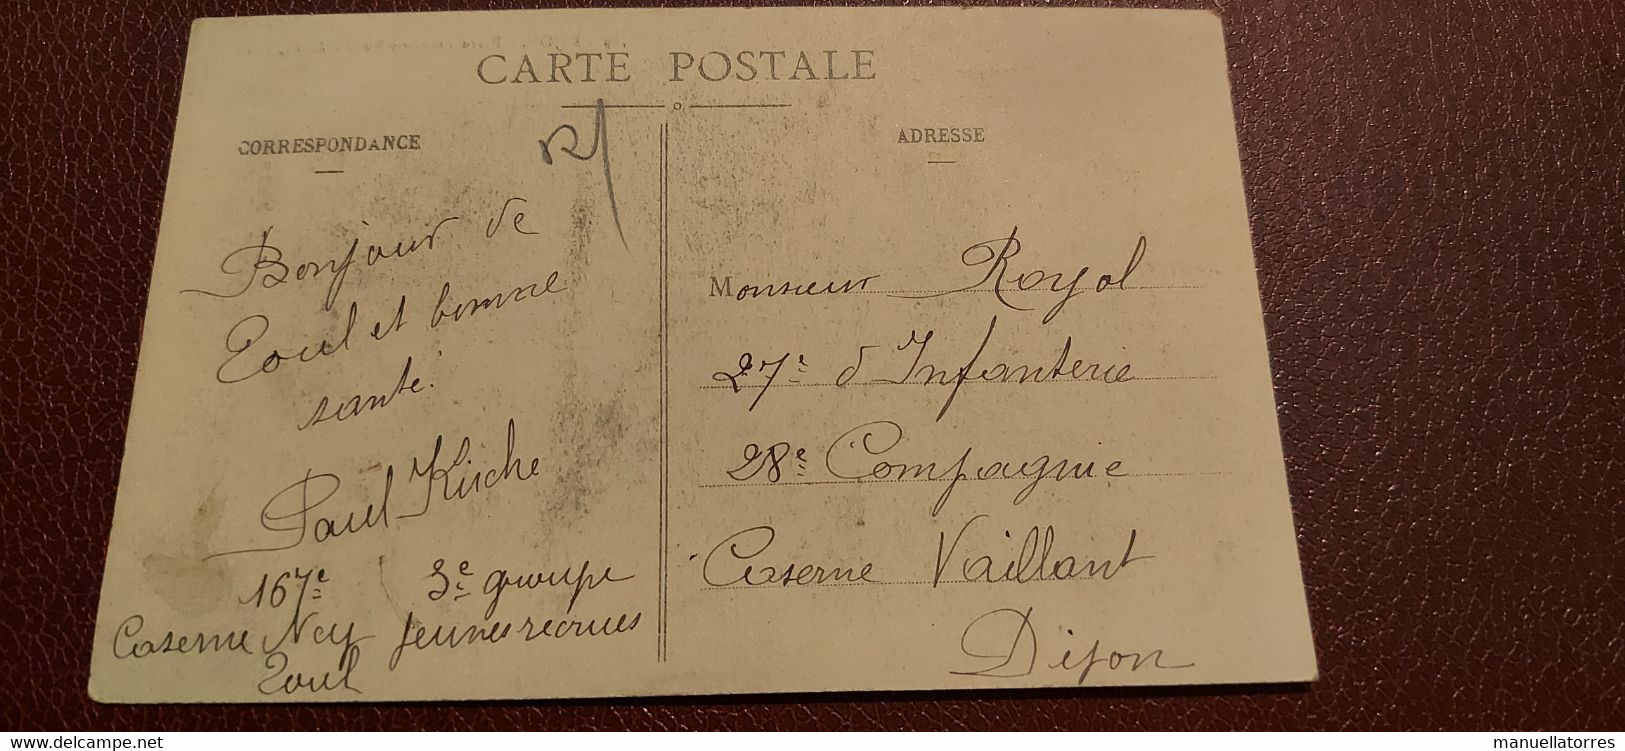 CARTE POSTALE
CORRESPONDANCE
ADRESSE
Bonjour de
Toul et bonne
santé.
Paul Kirche
167e 3e groupe
Caserne Ney Jeunes recrues
Toul
Monsieur Royol
27e d'Infanterie
28e Compagnie
Caserne Vaillant
Dijon
www.delcampe.net
manuellatorres